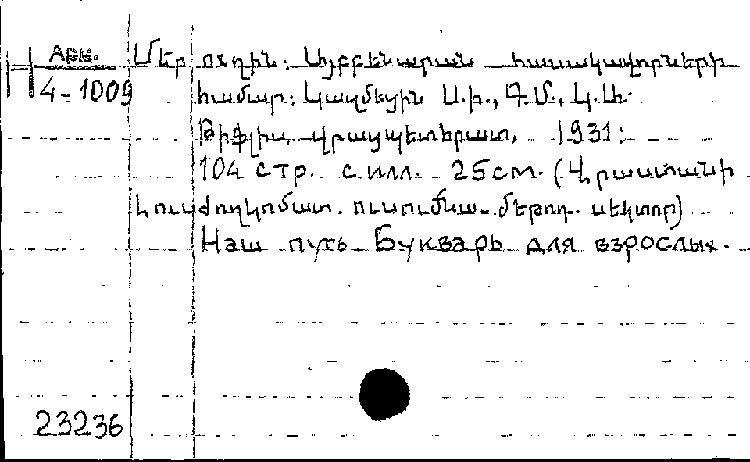 Арм.
Н 4-1009
Մեր ուղին: Այբբենարան հասակավորների
համար: Կազմեցին Ա.Ի., Գ.Մ., Կ.Ա.
Թիֆլիս, Վրացպետհրատ, 1931:
104 стр. с илл. 25см. (Վրաստանի
Լուսժողկոմատ. ուսումնա-մեթոդ. սեկտոր)
Наш путь Букварь для взрослых.
23236